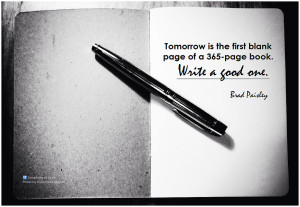 Tomorrow is the first blank
page of a 365-page book.
Write a good one.
Brad Paisley